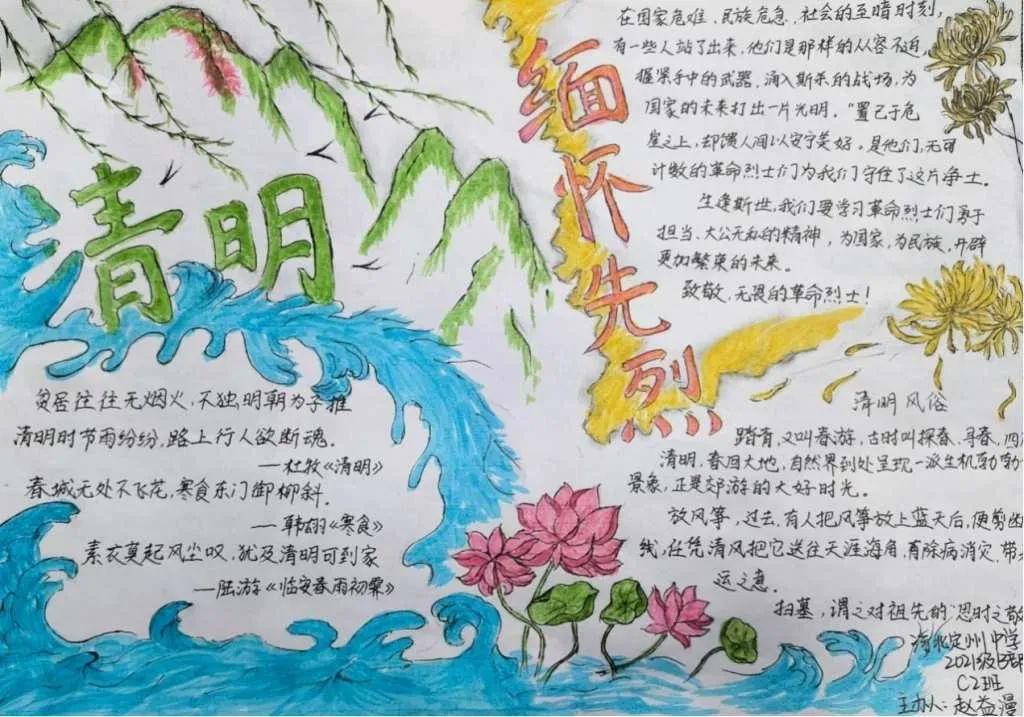 清明
缅怀先烈
在国家危难、民族危急、社会的至暗时刻,
有一些人站了出来,他们是那样的从容不迫,
握紧手中的武器,涌入斯杀的战场,为
国家的未来打出一片光明。"置己于危
崖之上,却馈人间以安宁美好。是他们,无可
计数的革命烈士们为我们守住了这片净土。
生逢斯世,我们要学习革命烈士们勇于
担当、大公无私的精神,为国家,为民族,开辟
更加繁荣的未来。
致敬,无畏的革命烈士!
贫居往往无烟火,不独明朝为子推
清明时节雨纷纷,路上行人欲断魂.
—杜牧《清明》
春城无处不飞花,寒食东门御柳斜.
—韩翃《寒食》
素衣莫起风尘叹,犹及清明可到家
—陆游《临安春雨初霁》
清明风俗
踏青,又叫春游,古时叫探春、寻春,四
清明,春回大地,自然界到处呈现一派生机勃勃
景象,正是郊游的大好时光。
放风筝,过去,有人把风筝放上蓝天后,便剪
线,任凭清风把它送往天涯海角,有除病消灾,带
运之意.
扫墓,谓之对祖先的"思时之敬
定州中学
2021级
C2班
主办人:赵益漫